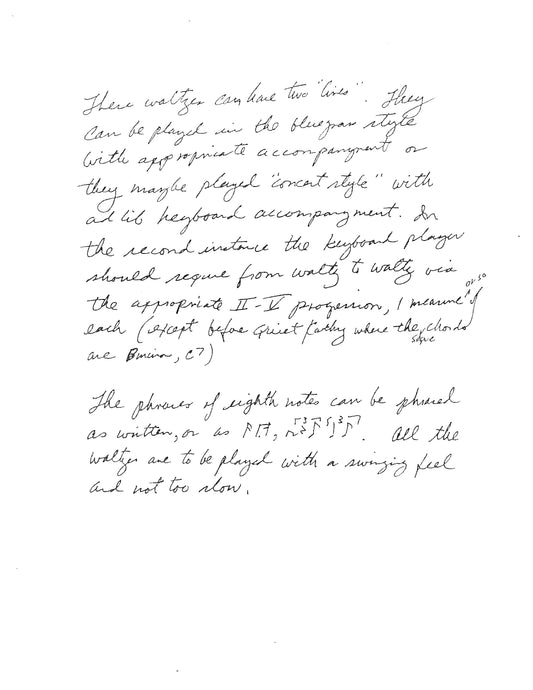 These waltzes can have two "lives". They
can be played in the bluegrass style
with appropriate accompanyment or
they maybe played "concert style" with
ad lib keyboard accompanyment. In
the second instance the keyboard player
should segue from waltz to waltz via
the appropriate II-V progression, 1 measure or so of
each (except before Quiet Kathy where the chords
are Bminor, C7)
The phrases of eighth notes can be phrased
as written, or as
. All the
waltzes are to be played with a swinging feel
and not too slow.